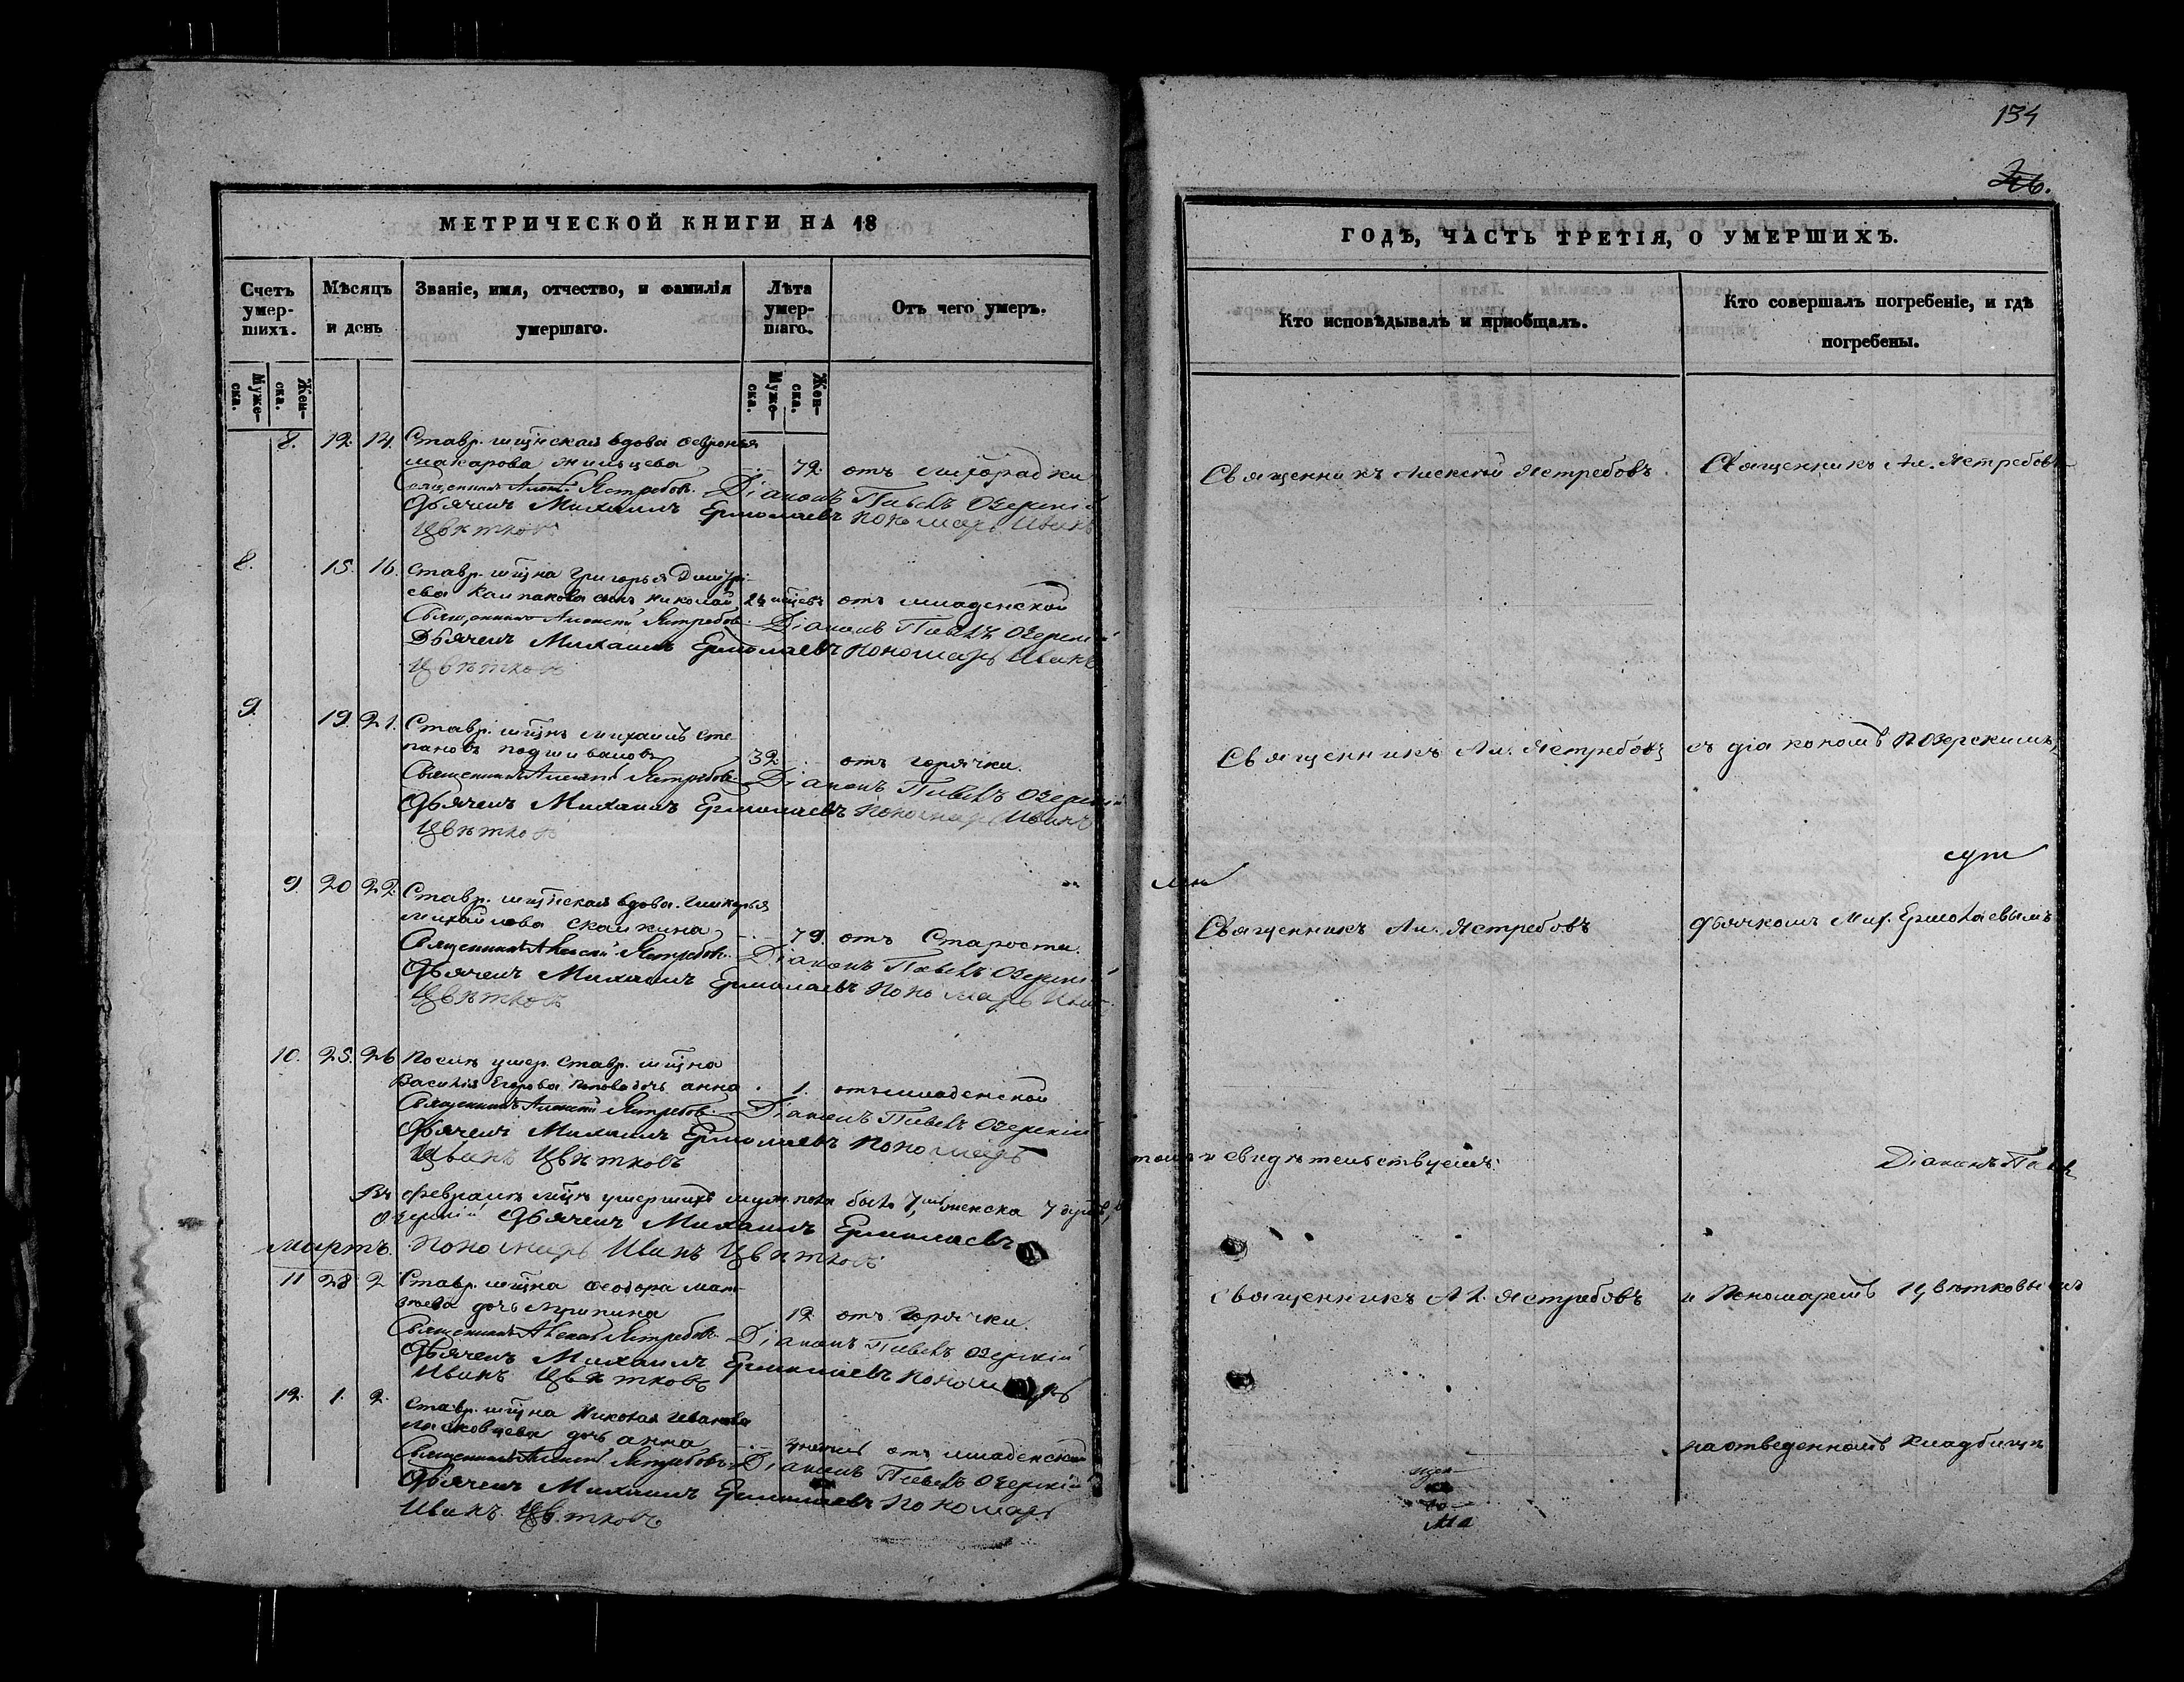 134
26.
МЕТРИЧЕСКОЙ КНИГИ НА 18
ГОДЪ, ЧАСТЬ ТРЕТІЯ, О УМЕРШИХЪ.
Счетъ умер-шихъ.
Мѣсяцъ и день
Званіе, имя, отчество, и фамилія умершаго.
Лѣта умер-шаго.
Отъ чего умеръ.
Кто исповѣдывалъ и пріобщалъ.
Кто совершалъ погребеніе, и гдѣ погребены.
Муже-ска.
Жен-ска.
Муже-ска.
Жен-ска.
8. 12. 14. Ставр. мщнская вдова Февронья
Макарова Жильцева 72. отъ лихорадки Священникъ Алексій Ястребовъ Священникъ Ал. Ястребовъ
Священникъ Алексій Ястребовъ. Діаконъ Павелъ Озерскій
Дьячекъ Михаилъ Ермолаевъ Пономарь Иванъ
Цвѣтковъ
8. 15. 16. Ставр. мщна Григорья Дмитрі-
ева Калпакова сынъ Николай от младенской
Священникъ Алексій Ястребовъ. Діаконъ Павелъ Озерскій
Дьячекъ Михаилъ Ермолаевъ Пономарь Иванъ
Цвѣтковъ
9. 19. 21. Ставр. мщнъ Михаилъ Сте-
пановъ Подшиваловъ 32. отъ горячки. Священникъ Ал. Ястребовъ съ діакономъ П. Озерскимъ,
Священникъ Алексій Ястребовъ. Діаконъ Павелъ Озерскій
Дьячекъ Михаилъ Ермолаевъ Пономарь Иванъ
Цвѣтковъ
9. 20 22. Ставр. мщнская вдова Гликерья
Михайлова 79. отъ Старости. Священникъ Ал. Ястребовъ дьячкомъ Мих. Ермолаевымъ
Священникъ Алексій Ястребовъ. Діаконъ Павелъ Озерскій
Дьячекъ Михаилъ Ермолаевъ Пономарь Иванъ
Цвѣтковъ
10. 25. 26 Послѣ умер. Ставр. мщна
Василія Егорова Попова дочь Анна 1. отъ младенской
Священникъ Алексій Ястребовъ. Діаконъ Павелъ Озерскій
Дьячекъ Михаилъ Ермолаевъ Пономарь
Иванъ Цвѣтковъ
Въ февралѣ мцѣ умершихъ муж. пола было 7, женска 7 свидѣтельствуемъ: Діаконъ Павелъ
Озерскій Дьячекъ Михаилъ Ермолаевъ
Мартъ. Пономарь Иванъ Цвѣтковъ
11 28 2 Ставр. мщна Феодора Мат-
вѣева дочь 12 отъ горячки. Священникъ Ал. Ястребовъ и Пономаремъ Цвѣтковымъ
Священникъ Алексій Ястребовъ. Діаконъ Павелъ Озерскій
Дьячекъ Михаилъ Ермолаевъ Пономарь
Иванъ Цвѣтковъ
12. 1. 2. Ставр. мщна Николая Иванова
дочь Анна отъ младенской на отведенномъ кладбищѣ
Священникъ Алексій Ястребовъ. Діаконъ Павелъ Озерскій
Дьячекъ Михаилъ Ермолаевъ Пономарь
Иванъ Цвѣтковъ